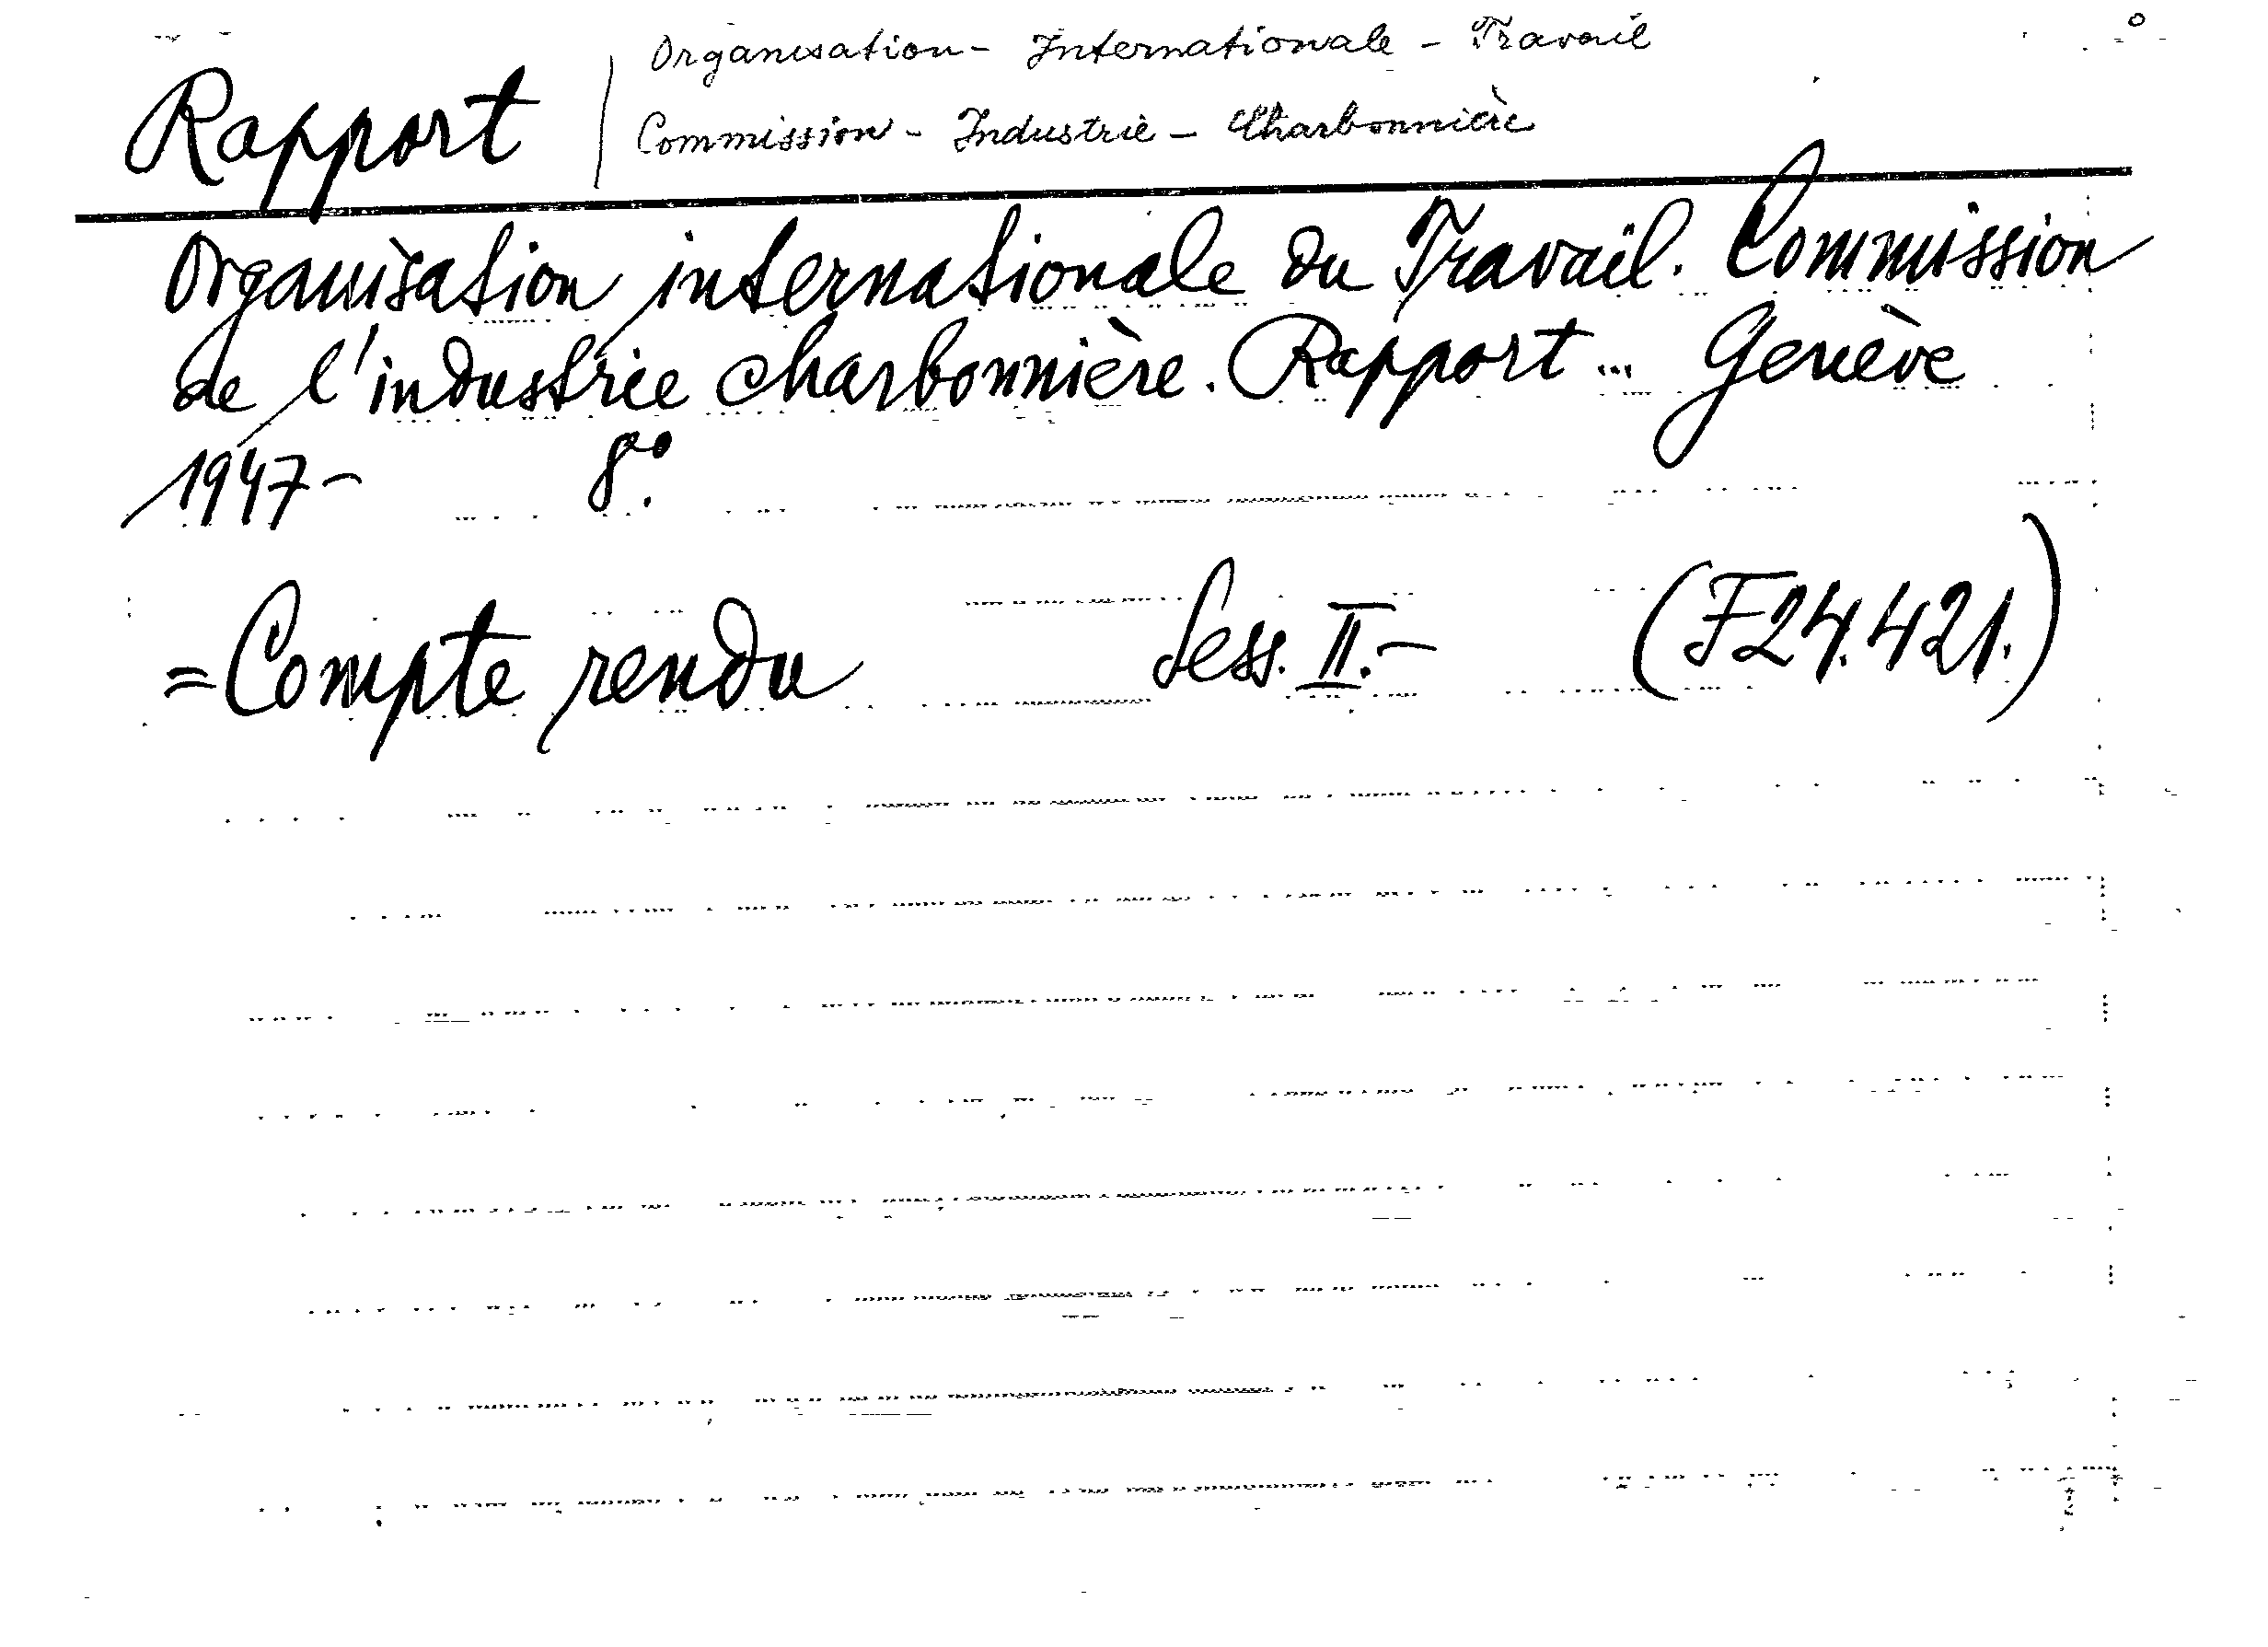 Organisation - Internationale - Travail
Rapport
Commission - Industrie - Charbonnière
Organisation internationale du Travail. Commission
de l'industrie charbonnière. Rapport ... Genève
1947- 8°.
= Compte rendu Sess. II.- (F24.421.)